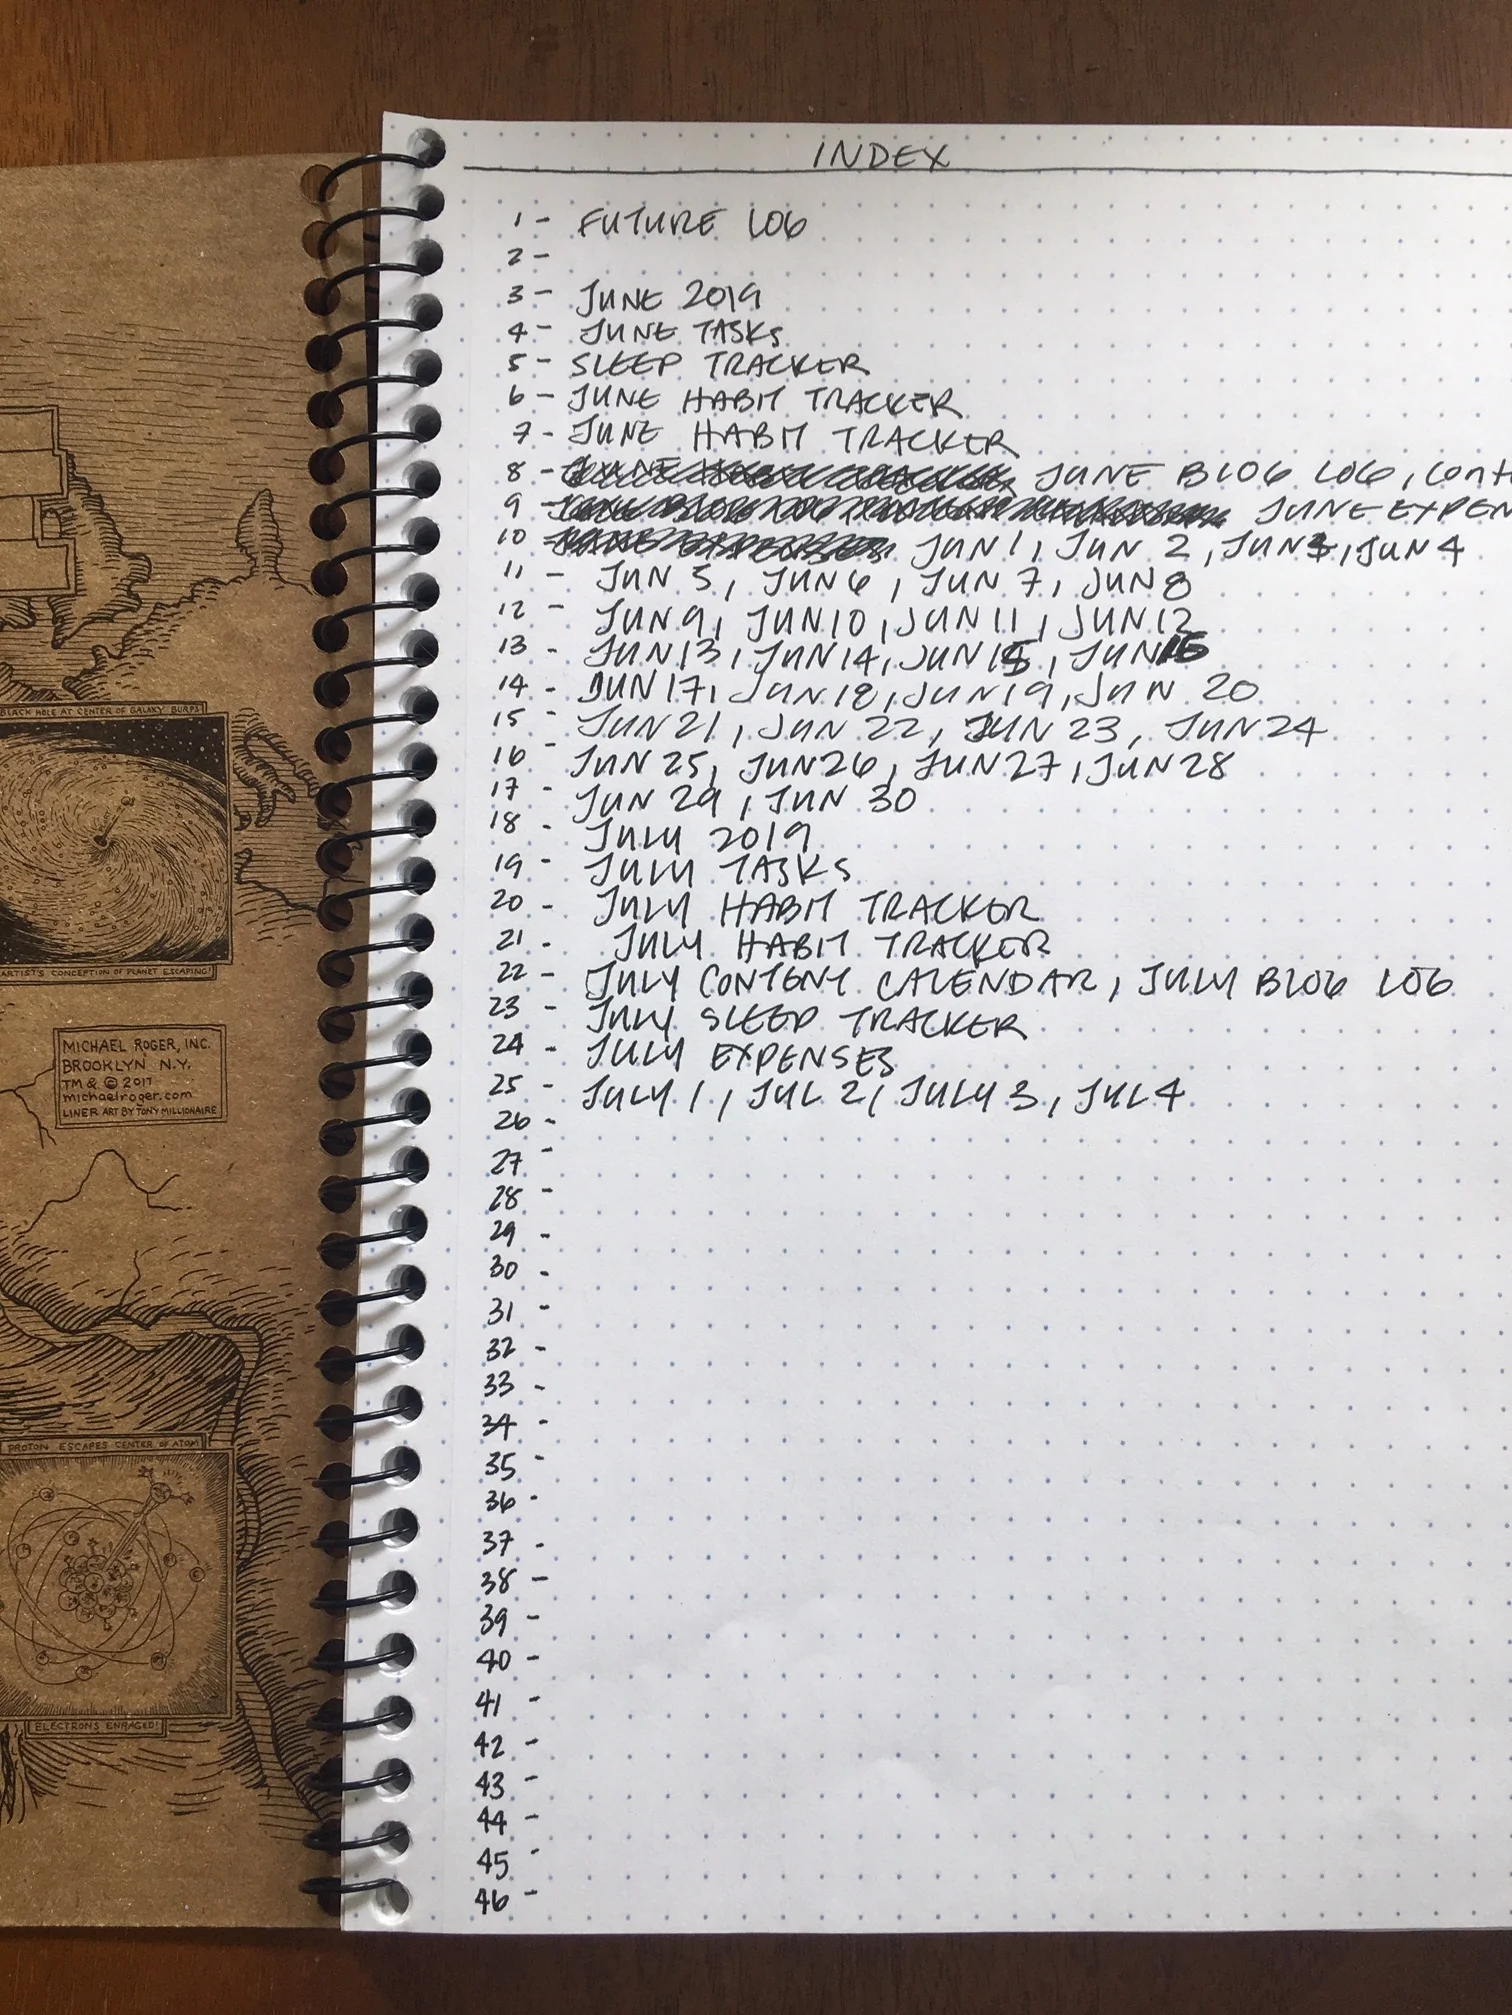 BLACK HOLE AT CENTER OF GALAXY BURPS!
ARTIST'S CONCEPTION OF PLANET ESCAPING!
MICHAEL ROGER, INC.
BROOKLYN N.Y.
TM & © 2017
michaelroger.com
LINER ART BY TONY MILLIONAIRE
PROTON ESCAPES CENTER OF ATOM!
ELECTRONS ENRAGED!
INDEX
1 - FUTURE LOG
2 -
3 - JUNE 2019
4 - JUNE TASKS
5 - SLEEP TRACKER
6 - JUNE HABIT TRACKER
7 - JUNE HABIT TRACKER
8 - JUNE BLOG LOG, CONT
9 - JUNE EXPEN
10 - JUN 1, JUN 2, JUN 3, JUN 4
11 - JUN 5, JUN 6, JUN 7, JUN 8
12 - JUN 9, JUN 10, JUN 11, JUN 12
13 - JUN 13, JUN 14, JUN 15, JUN 16
14 - JUN 17, JUN 18, JUN 19, JUN 20
15 - JUN 21, JUN 22, JUN 23, JUN 24
16 - JUN 25, JUN 26, JUN 27, JUN 28
17 - JUN 29, JUN 30
18 - JULY 2019
19 - JULY TASKS
20 - JULY HABIT TRACKER
21 - JULY HABIT TRACKER
22 - JULY CONTENT CALENDAR, JULY BLOG LOG
23 - JULY SLEEP TRACKER
24 - JULY EXPENSES
25 - JULY 1, JUL 2, JULY 3, JUL 4
26 -
27 -
28 -
29 -
30 -
31 -
32 -
33 -
34 -
35 -
36 -
37 -
38 -
39 -
40 -
41 -
42 -
43 -
44 -
45 -
46 -